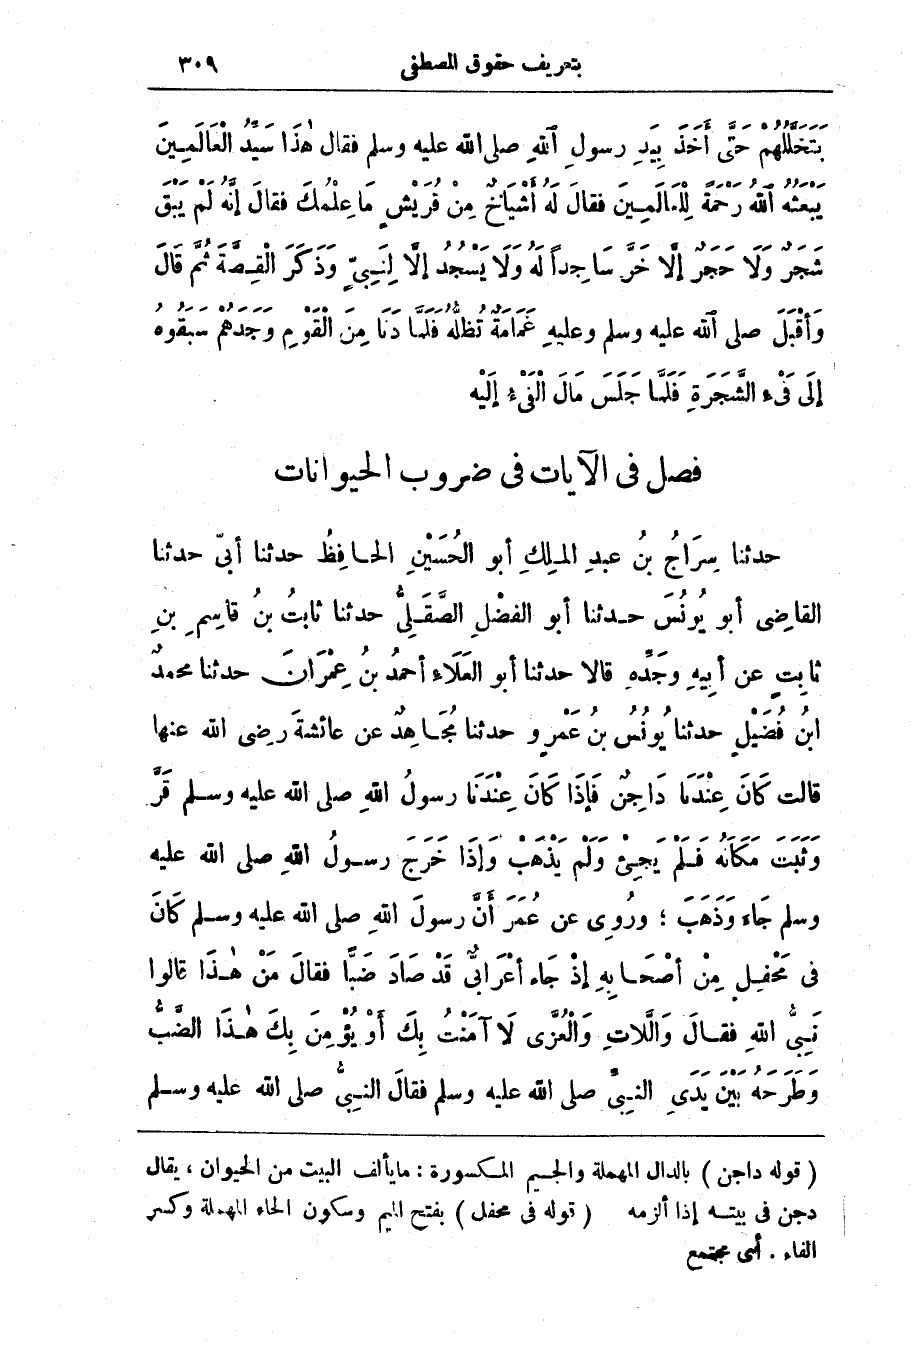 بتعريف حقوق المصطفى ٣٠٩
يَتَخَلَّلُهُمْ حَتَّى أَخَذَ بِيَدِ رسولِ اللهِ صلى الله عليه وسلم فقال هٰذَا سَيِّدُ الْعَالَمِينَ
يَبْعَثُهُ اللهُ رَحْمَةً لِلْعَالَمِينَ فقالَ لَهُ أَشْيَاخٌ مِنْ قُرَيْشٍ مَا عِلْمُكَ فقالَ إِنَّهُ لَمْ يَبْقَ
شَجَرٌ وَلَا حَجَرٌ إِلَّا خَرَّ سَاجِداً لَهُ وَلَا يَسْجُدُ إِلَّا لِنَبِيٍّ وَذَكَرَ الْقِصَّةَ ثُمَّ قَالَ
وَأَقْبَلَ صلى الله عليه وسلم وعليهِ غَمَامَةٌ تُظِلُّهُ فَلَمَّا دَنَا مِنَ الْقَوْمِ وَجَدَهُمْ سَبَقُوهُ
إِلَى فَيْءِ الشَّجَرَةِ فَلَمَّا جَلَسَ مَالَ الْفَيْءُ إِلَيْهِ
فصل فى الآيات فى ضروب الحيوانات
حدثنا سِرَاجُ بنُ عبدِ الملِكِ أبو الحُسَيْنِ الحافِظُ حدثنا أَبِى حدثنا
القاضِى أبو يُونُسَ حدثنا أبو الفضْلِ الصَّقَلِىُّ حدثنا ثابتُ بنُ قاسِمِ بنِ
ثابِتٍ عن أبِيهِ وَجَدِّهِ قالا حدثنا أبو العَلَاءِ أحمدُ بنُ عِمْرَانَ حدثنا محمدُ
ابنُ فُضَيْلٍ حدثنا يُونُسُ بنُ عَمْرٍو حدثنا مُجَاهِدٌ عن عائشةَ رضى الله عنها
قالت كَانَ عِنْدَنَا دَاجِنٌ فَإِذَا كَانَ عِنْدَنَا رسولُ اللهِ صلى الله عليه وسلم قَرَّ
وَثَبَتَ مَكَانَهُ فَلَمْ يَجِئْ وَلَمْ يَذْهَبْ وَإِذَا خَرَجَ رسولُ اللهِ صلى الله عليه
وسلم جَاءَ وَذَهَبَ ؛ ورُوِى عن عُمَرَ أَنَّ رسولَ اللهِ صلى الله عليه وسلم كَانَ
فى مَحْفِلٍ مِنْ أَصْحَابِهِ إِذْ جَاءَ أَعْرَابِىٌّ قَدْ صَادَ ضَبًّا فقالَ مَنْ هٰذَا قالوا
نَبِىُّ اللهِ فقالَ وَاللَّاتِ وَالْعُزَّى لَا آمَنْتُ بِكَ أَوْ يُؤْمِنَ بِكَ هٰذَا الضَّبُّ
وَطَرَحَهُ بَيْنَ يَدَىِ النبىِّ صلى الله عليه وسلم فقالَ النبىُّ صلى الله عليه وسلم
( قوله داجن ) بالدال المهملة والجيم المكسورة : مايألف البيت من الحيوان ، يقال
دجن فى بيته إذا ألزمه ( قوله فى محفل ) بفتح الميم وسكون الحاء المهملة وكسر
الفاء . أى مجتمع